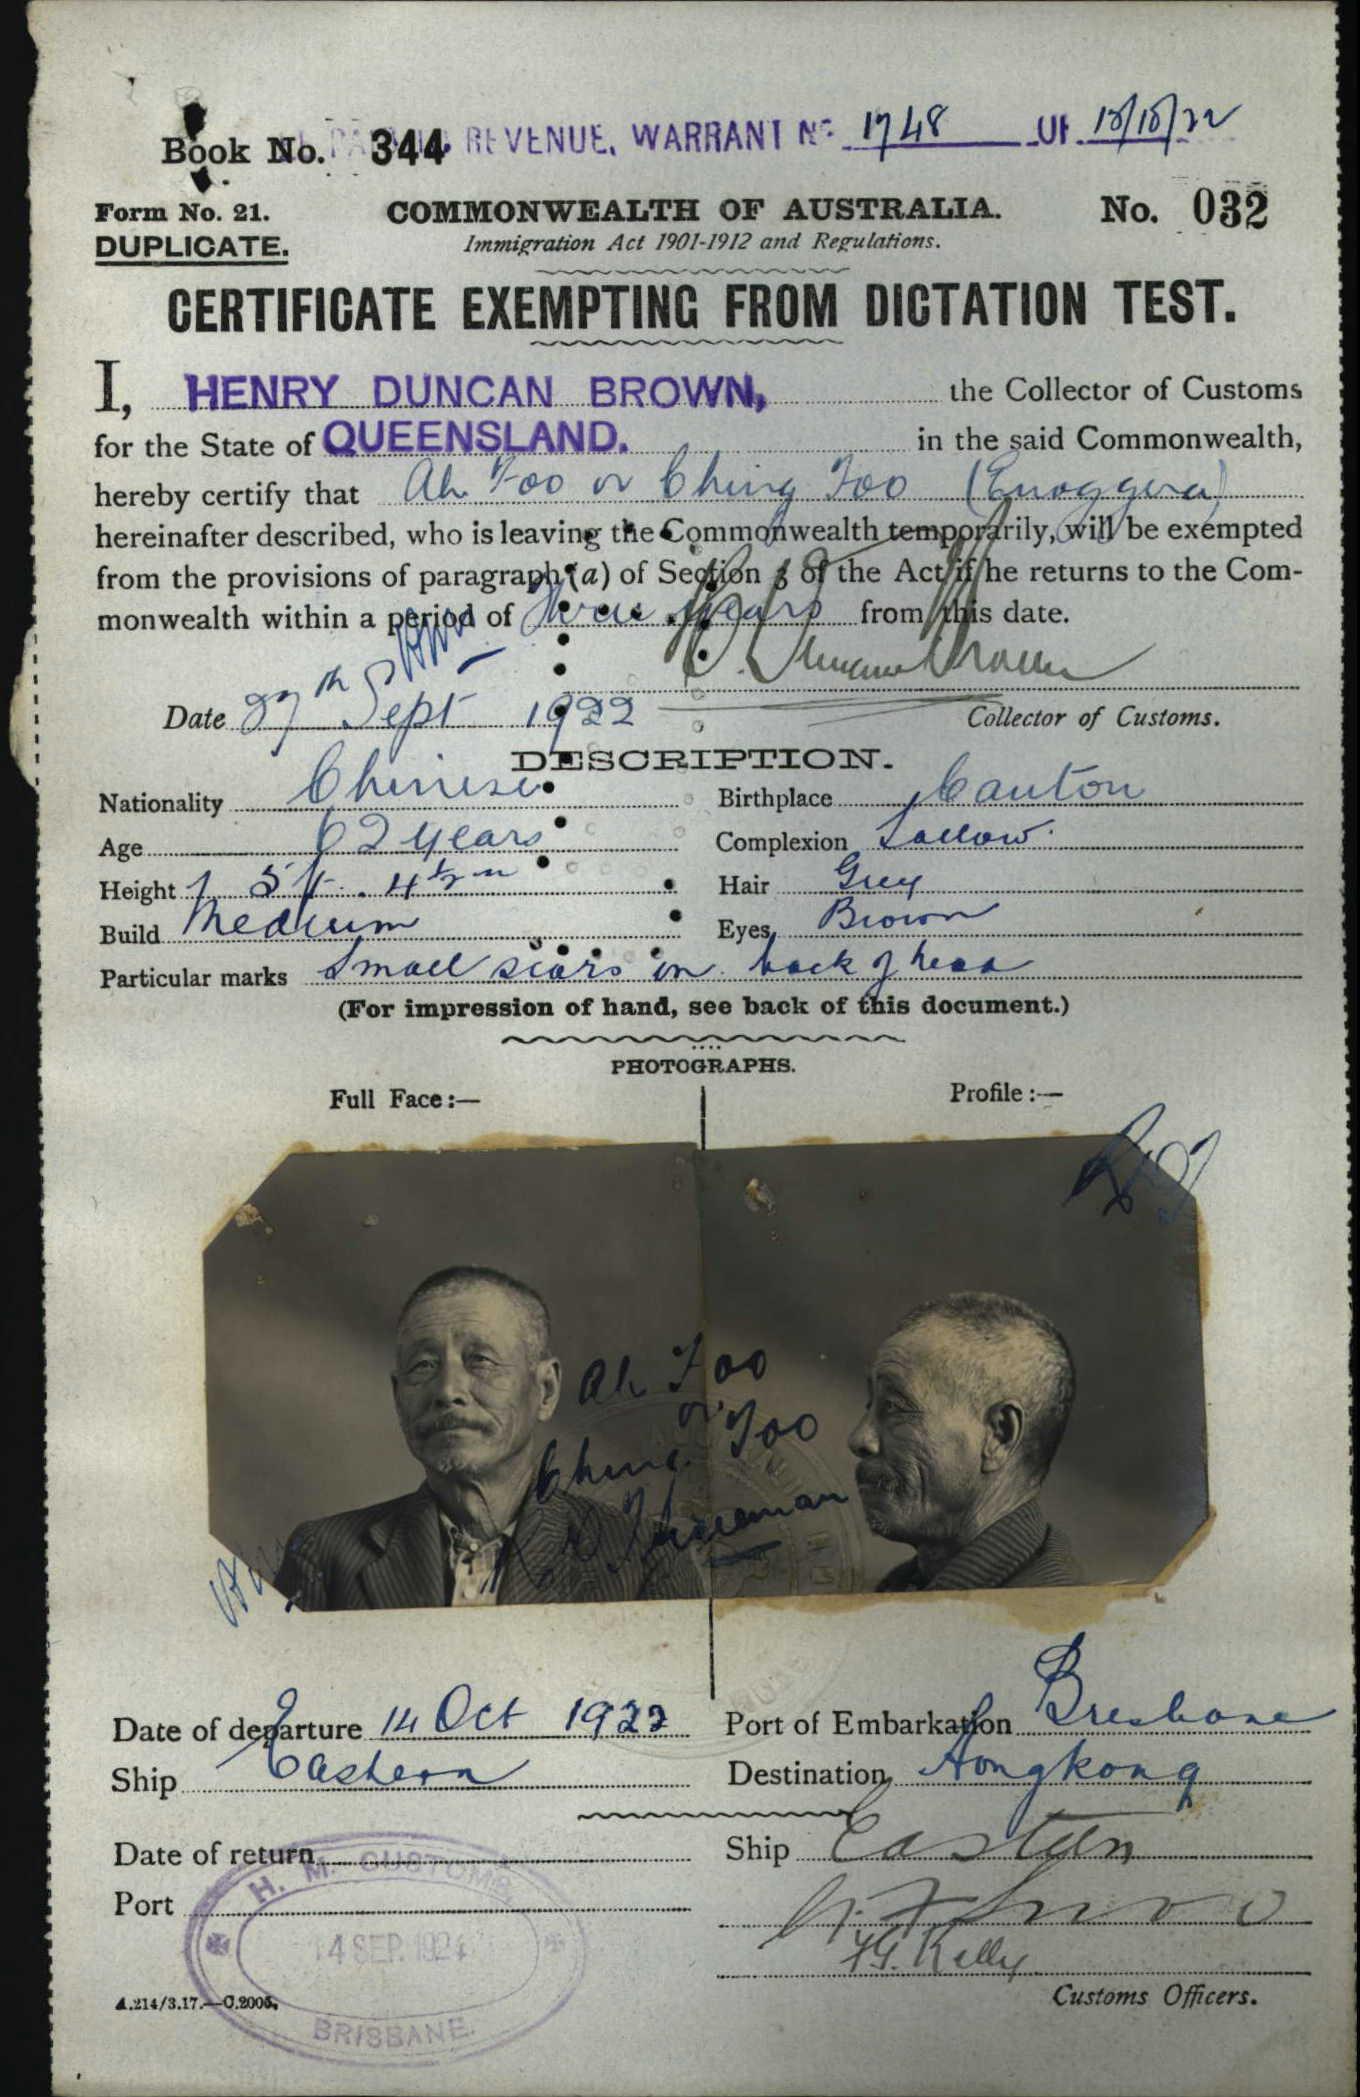 REVENUE. WARRANT No. 1748
Book No. 344
Form No. 21. COMMONWEALTH OF AUSTRALIA. No. 032
DUPLICATE. Immigration Act 1901-1912 and Regulations.
CERTIFICATE EXEMPTING FROM DICTATION TEST.
I, HENRY DUNCAN BROWN, the Collector of Customs
for the State of QUEENSLAND. in the said Commonwealth,
hereby certify that Ah Foo or Ching Foo (Enoggera)
hereinafter described, who is leaving the Commonwealth temporarily, will be exempted
from the provisions of paragraph (a) of Section 3 of the Act if he returns to the Com-
monwealth within a period of Three years from this date.
Date 27th Sept 1922 Collector of Customs.
DESCRIPTION.
Nationality Chinese Birthplace Canton
Age 62 years Complexion Sallow
Height 5 ft. 4½ in Hair Grey
Build Medium Eyes Brown
Particular marks Small scars on back of head
(For impression of hand, see back of this document.)
PHOTOGRAPHS.
Full Face:— Profile:—
Ah Foo
or
Ching Foo
Date of departure 14 Oct 1922 Port of Embarkation Brisbane
Ship Eastern Destination Hongkong
Date of return Ship Eastern
Port
H. M. CUSTOMS
14 SEP. 1924
BRISBANE.
F.G. Kelly
A.214/3.17.—C.2005. Customs Officers.